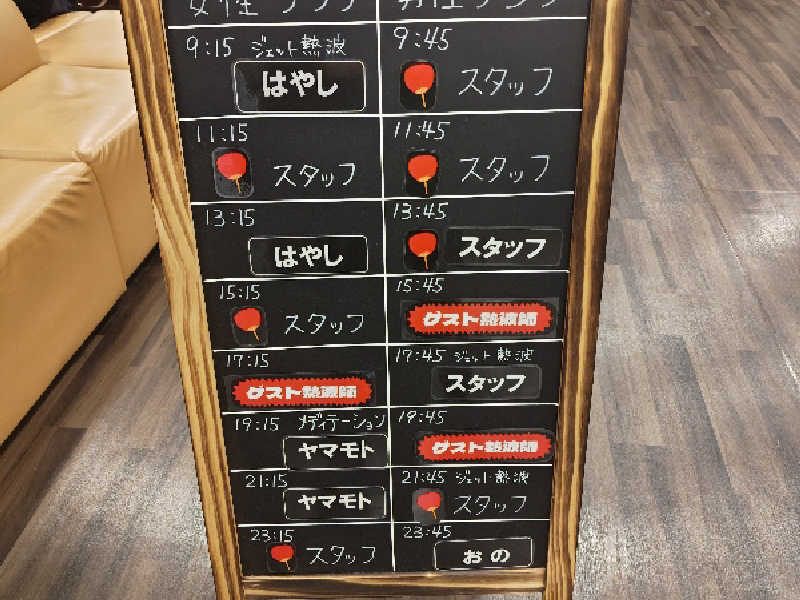 女性サウナ 男性サウナ
9:15 ジェット熱波 9:45
はやし スタッフ
11:15 11:45
スタッフ スタッフ
13:15 13:45
はやし スタッフ
15:15 15:45
スタッフ ゲスト熱波師
17:15 17:45 ジェット熱波
ゲスト熱波師 スタッフ
19:15 メディテーション 19:45
ヤマモト ゲスト熱波師
21:15 21:45 ジェット熱波
ヤマモト スタッフ
23:15 23:45
スタッフ おの